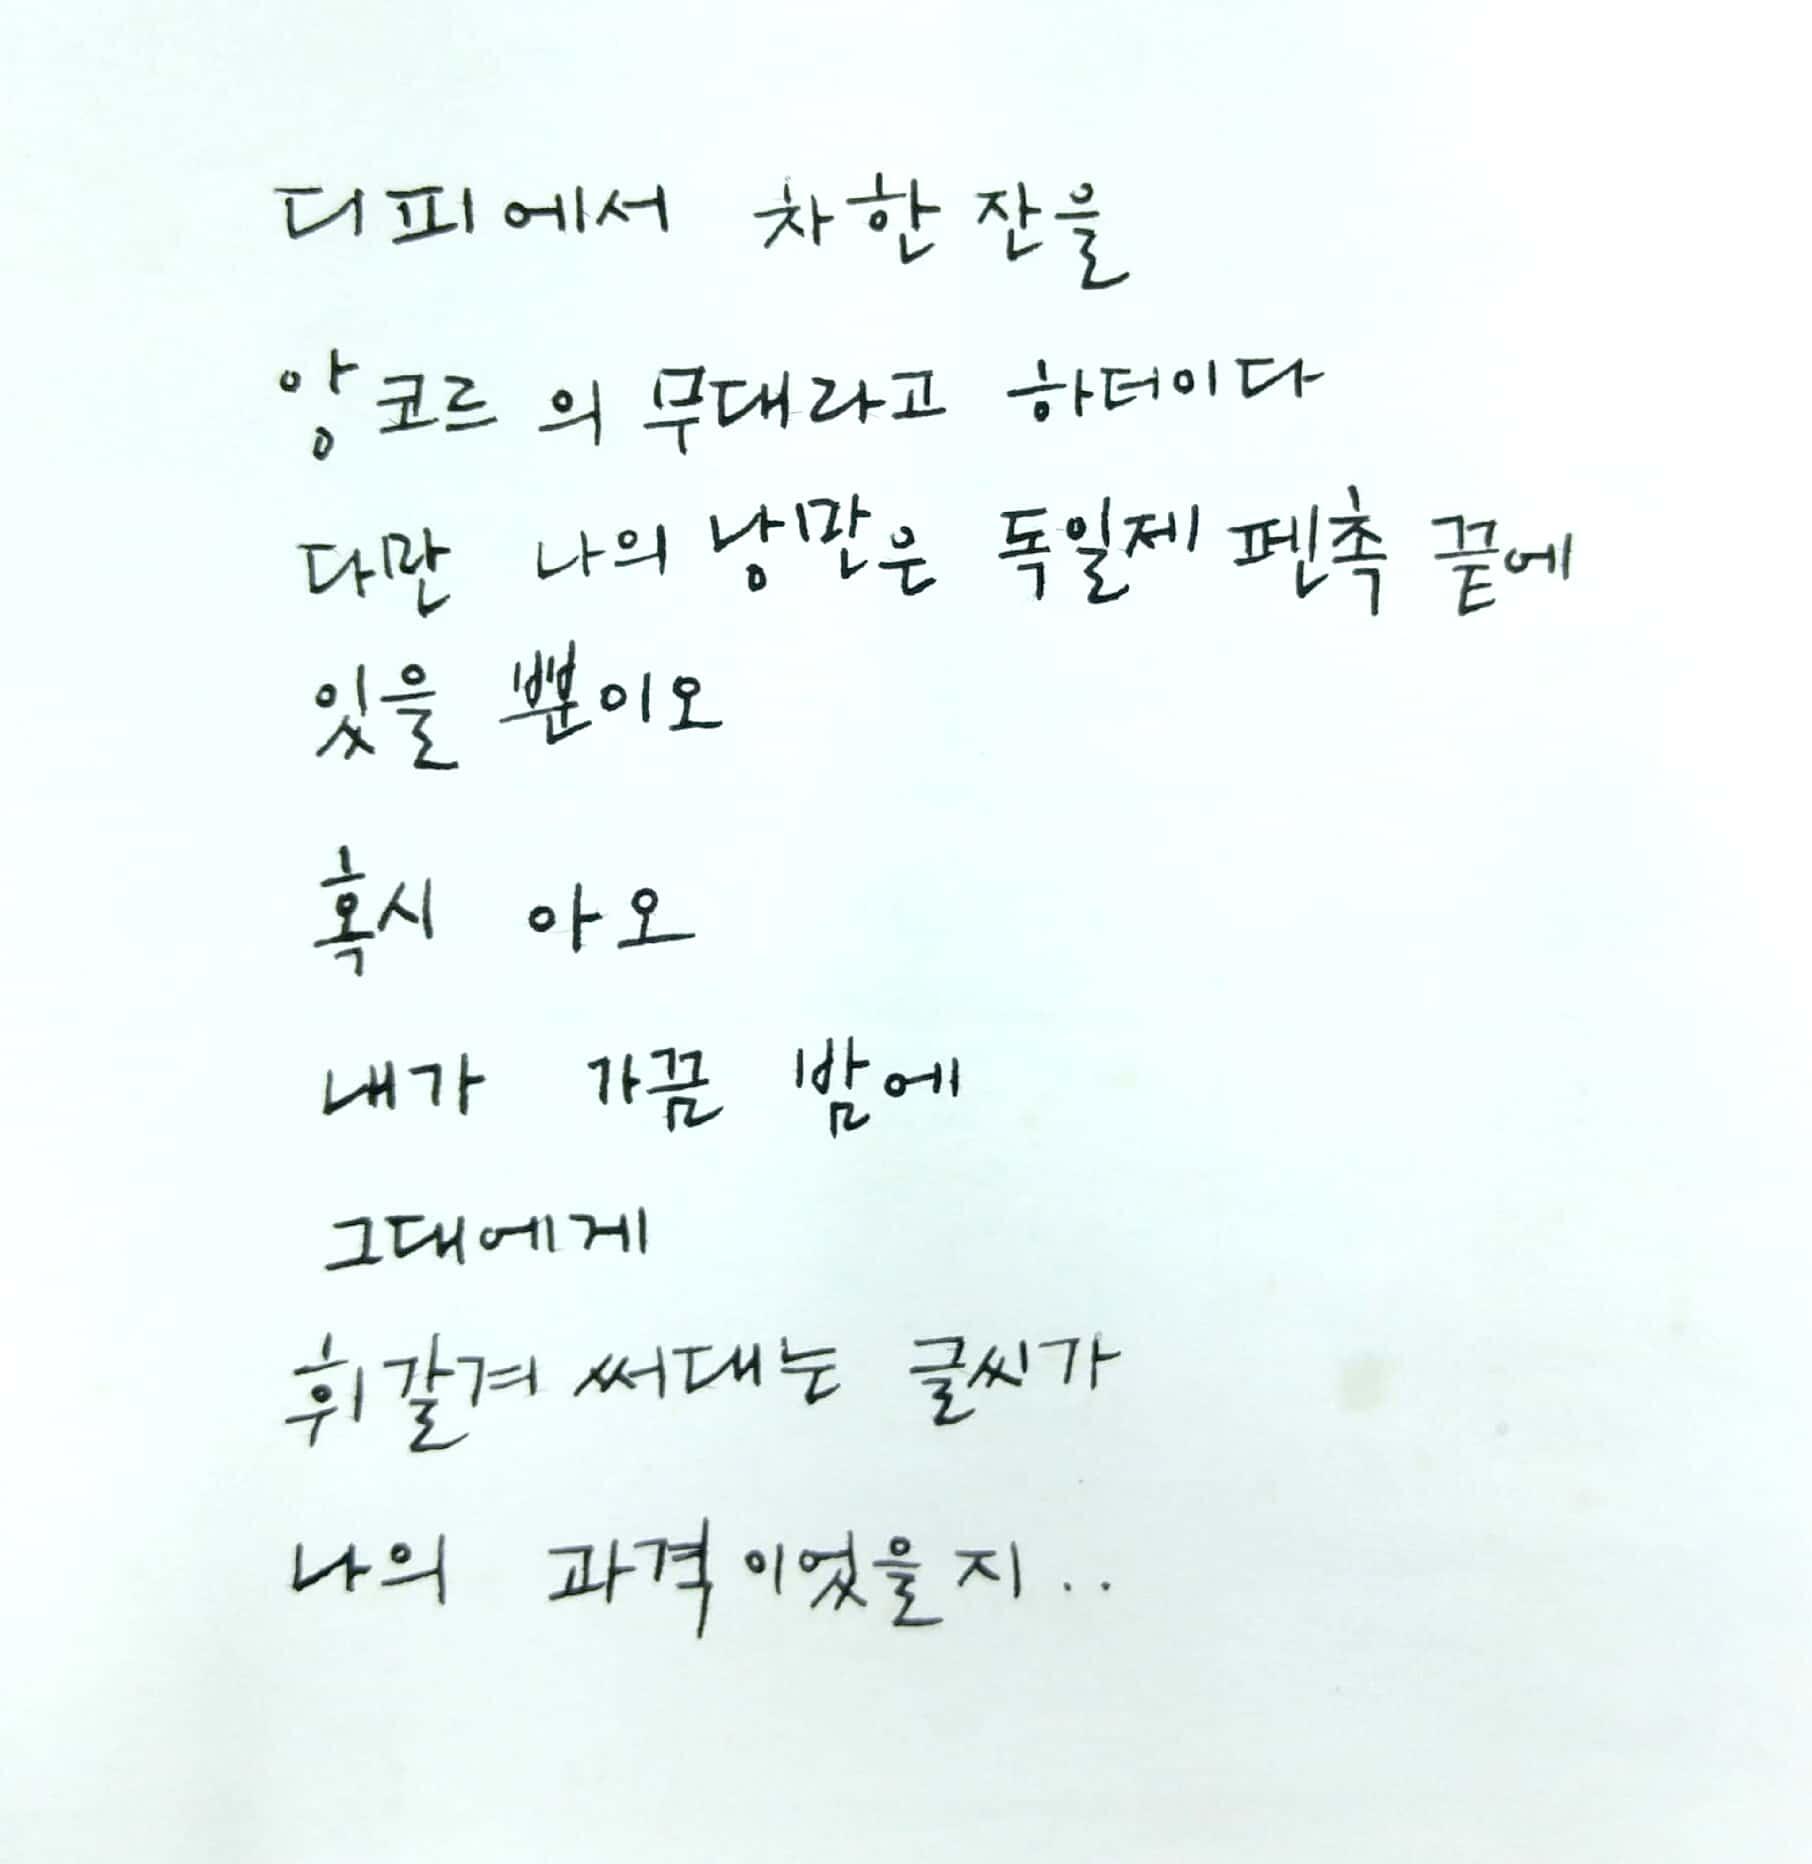 디피에서 차 한 잔을
앙코르의 무대라고 하더이다
다만 나의 낭만은 독일제 펜촉 끝에
있을 뿐이오
혹시 아오
내가 가끔 밤에
그대에게
휘갈겨 써대는 글씨가
나의 과격이었을지..